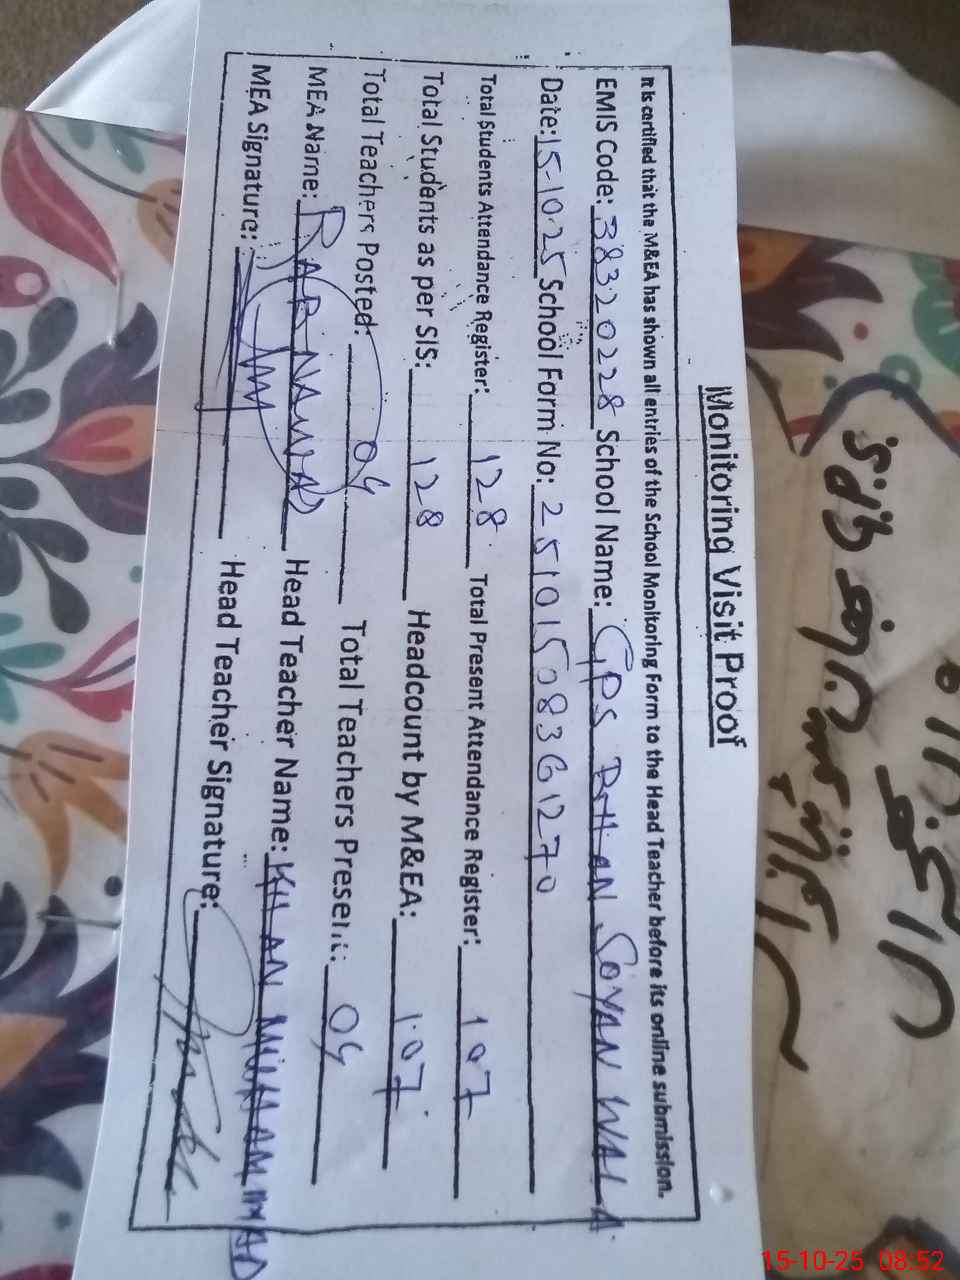 Monitoring Visit Proof
It is certified that the M&EA has shown all entries of the School Monitoring Form to the Head Teacher before its online submission.
EMIS Code: 38320228 School Name: GPS SOYAN WALA
Date: 15-10-25 School Form No: 25101508361270
Total Students Attendance Register: 128 Total Present Attendance Register: 107
Total Students as per SIS: 128 Headcount by M&EA: 107
Total Teachers Posted: 04 Total Teachers Present: 04
MEA Name: RAB NAWAZ Head Teacher Name: KHAN MUHAMMAD
MEA Signature: Head Teacher Signature:
15-10-25 08:52